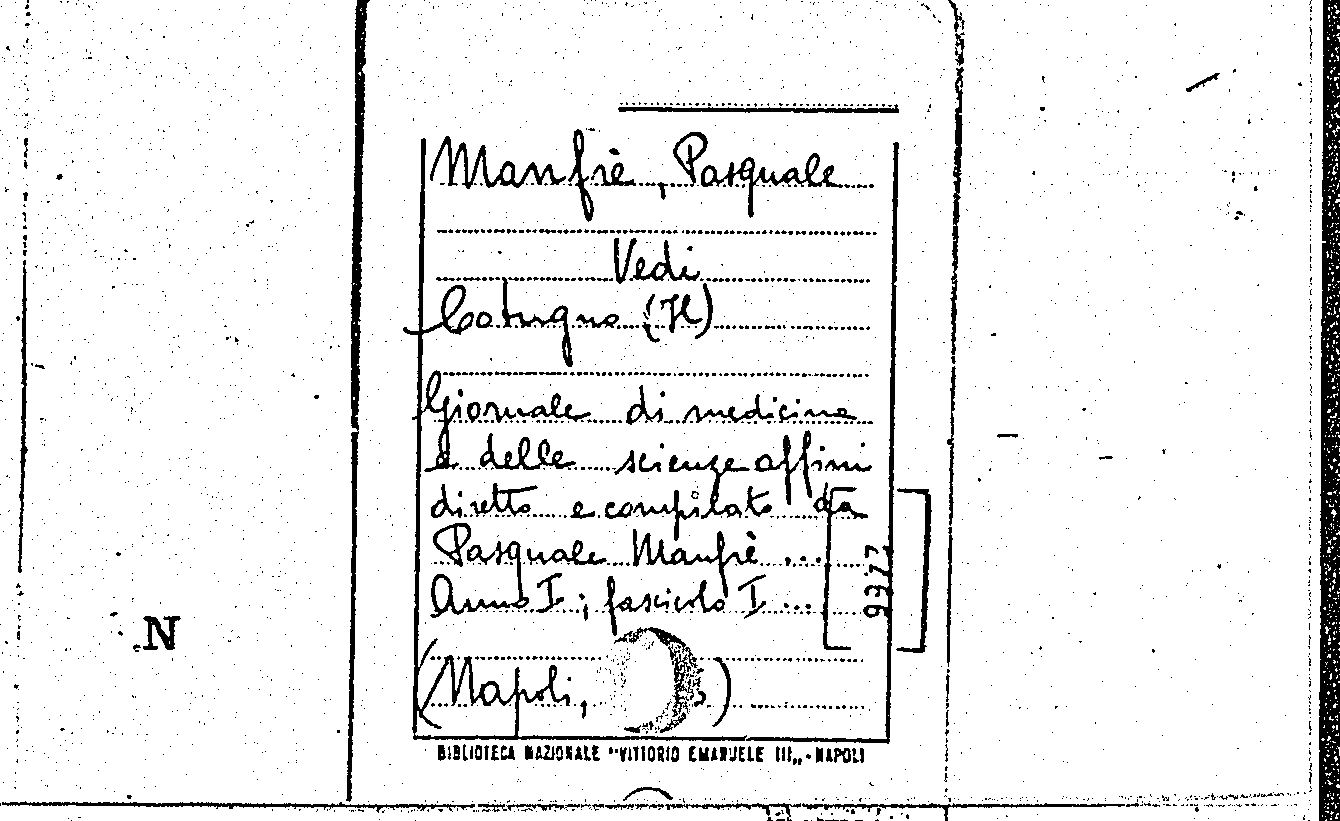 Manfrè, Pasquale
Vedi
Cotugno (Il)
Giornale di medicina
e delle scienze affini
diretto e compilato da
Pasquale Manfrè ...
Anno I; fascicolo I ...
9977
N
(Napoli, )
BIBLIOTECA NAZIONALE "VITTORIO EMANUELE III„ - NAPOLI